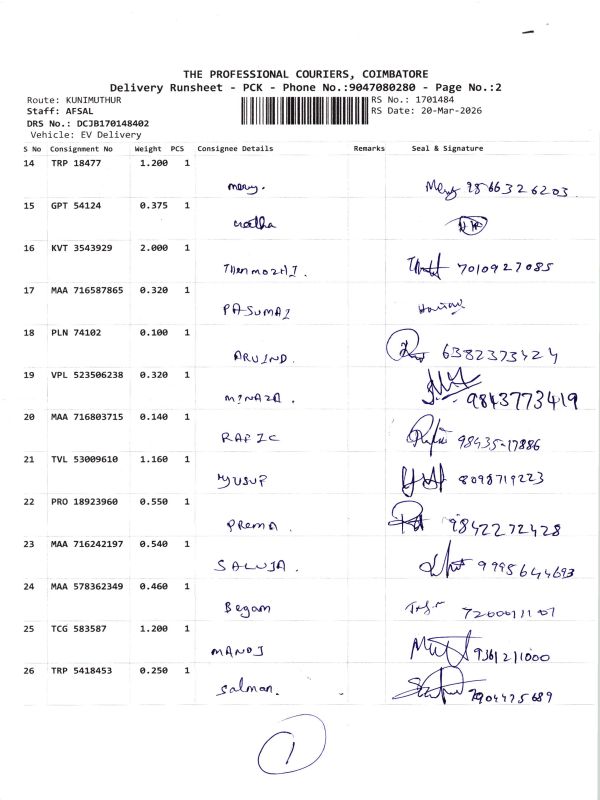 THE PROFESSIONAL COURIERS, COIMBATORE
Delivery Runsheet - PCK - Phone No.:9047080280 - Page No.:2
Route: KUNIMUTHUR RS No.: 1701484
Staff: AFSAL RS Date: 20-Mar-2026
DRS No.: DCJB170148402
Vehicle: EV Delivery
S No Consignment No Weight PCS Consignee Details Remarks Seal & Signature
14 TRP 18477 1.200 1
mery. Mery 9866326203.
15 GPT 54124 0.375 1
16 KVT 3543929 2.000 1
THenmozHI. 7010927085
17 MAA 716587865 0.320 1
PASUMAI
18 PLN 74102 0.100 1
ARVIND. 6382373424
19 VPL 523506238 0.320 1
MINAZA. 9843773419
20 MAA 716803715 0.140 1
RAFIC 98435-17886
21 TVL 53009610 1.160 1
YUSUF 8098719223
22 PRO 18923960 0.550 1
PREMA. 9842272428
23 MAA 716242197 0.540 1
SALUJA. 9995644693
24 MAA 578362349 0.460 1
Begam
25 TCG 583587 1.200 1
MANOJ 9361211000
26 TRP 5418453 0.250 1
Salman. 7904475689
1